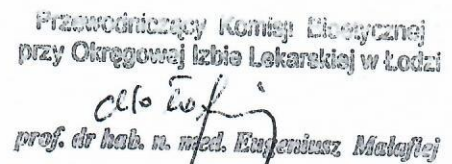 Przewodniczący Komisji Bioetycznej
przy Okręgowej Izbie Lekarskiej w Łodzi
prof. dr hab. n. med. Eugeniusz Małafiej